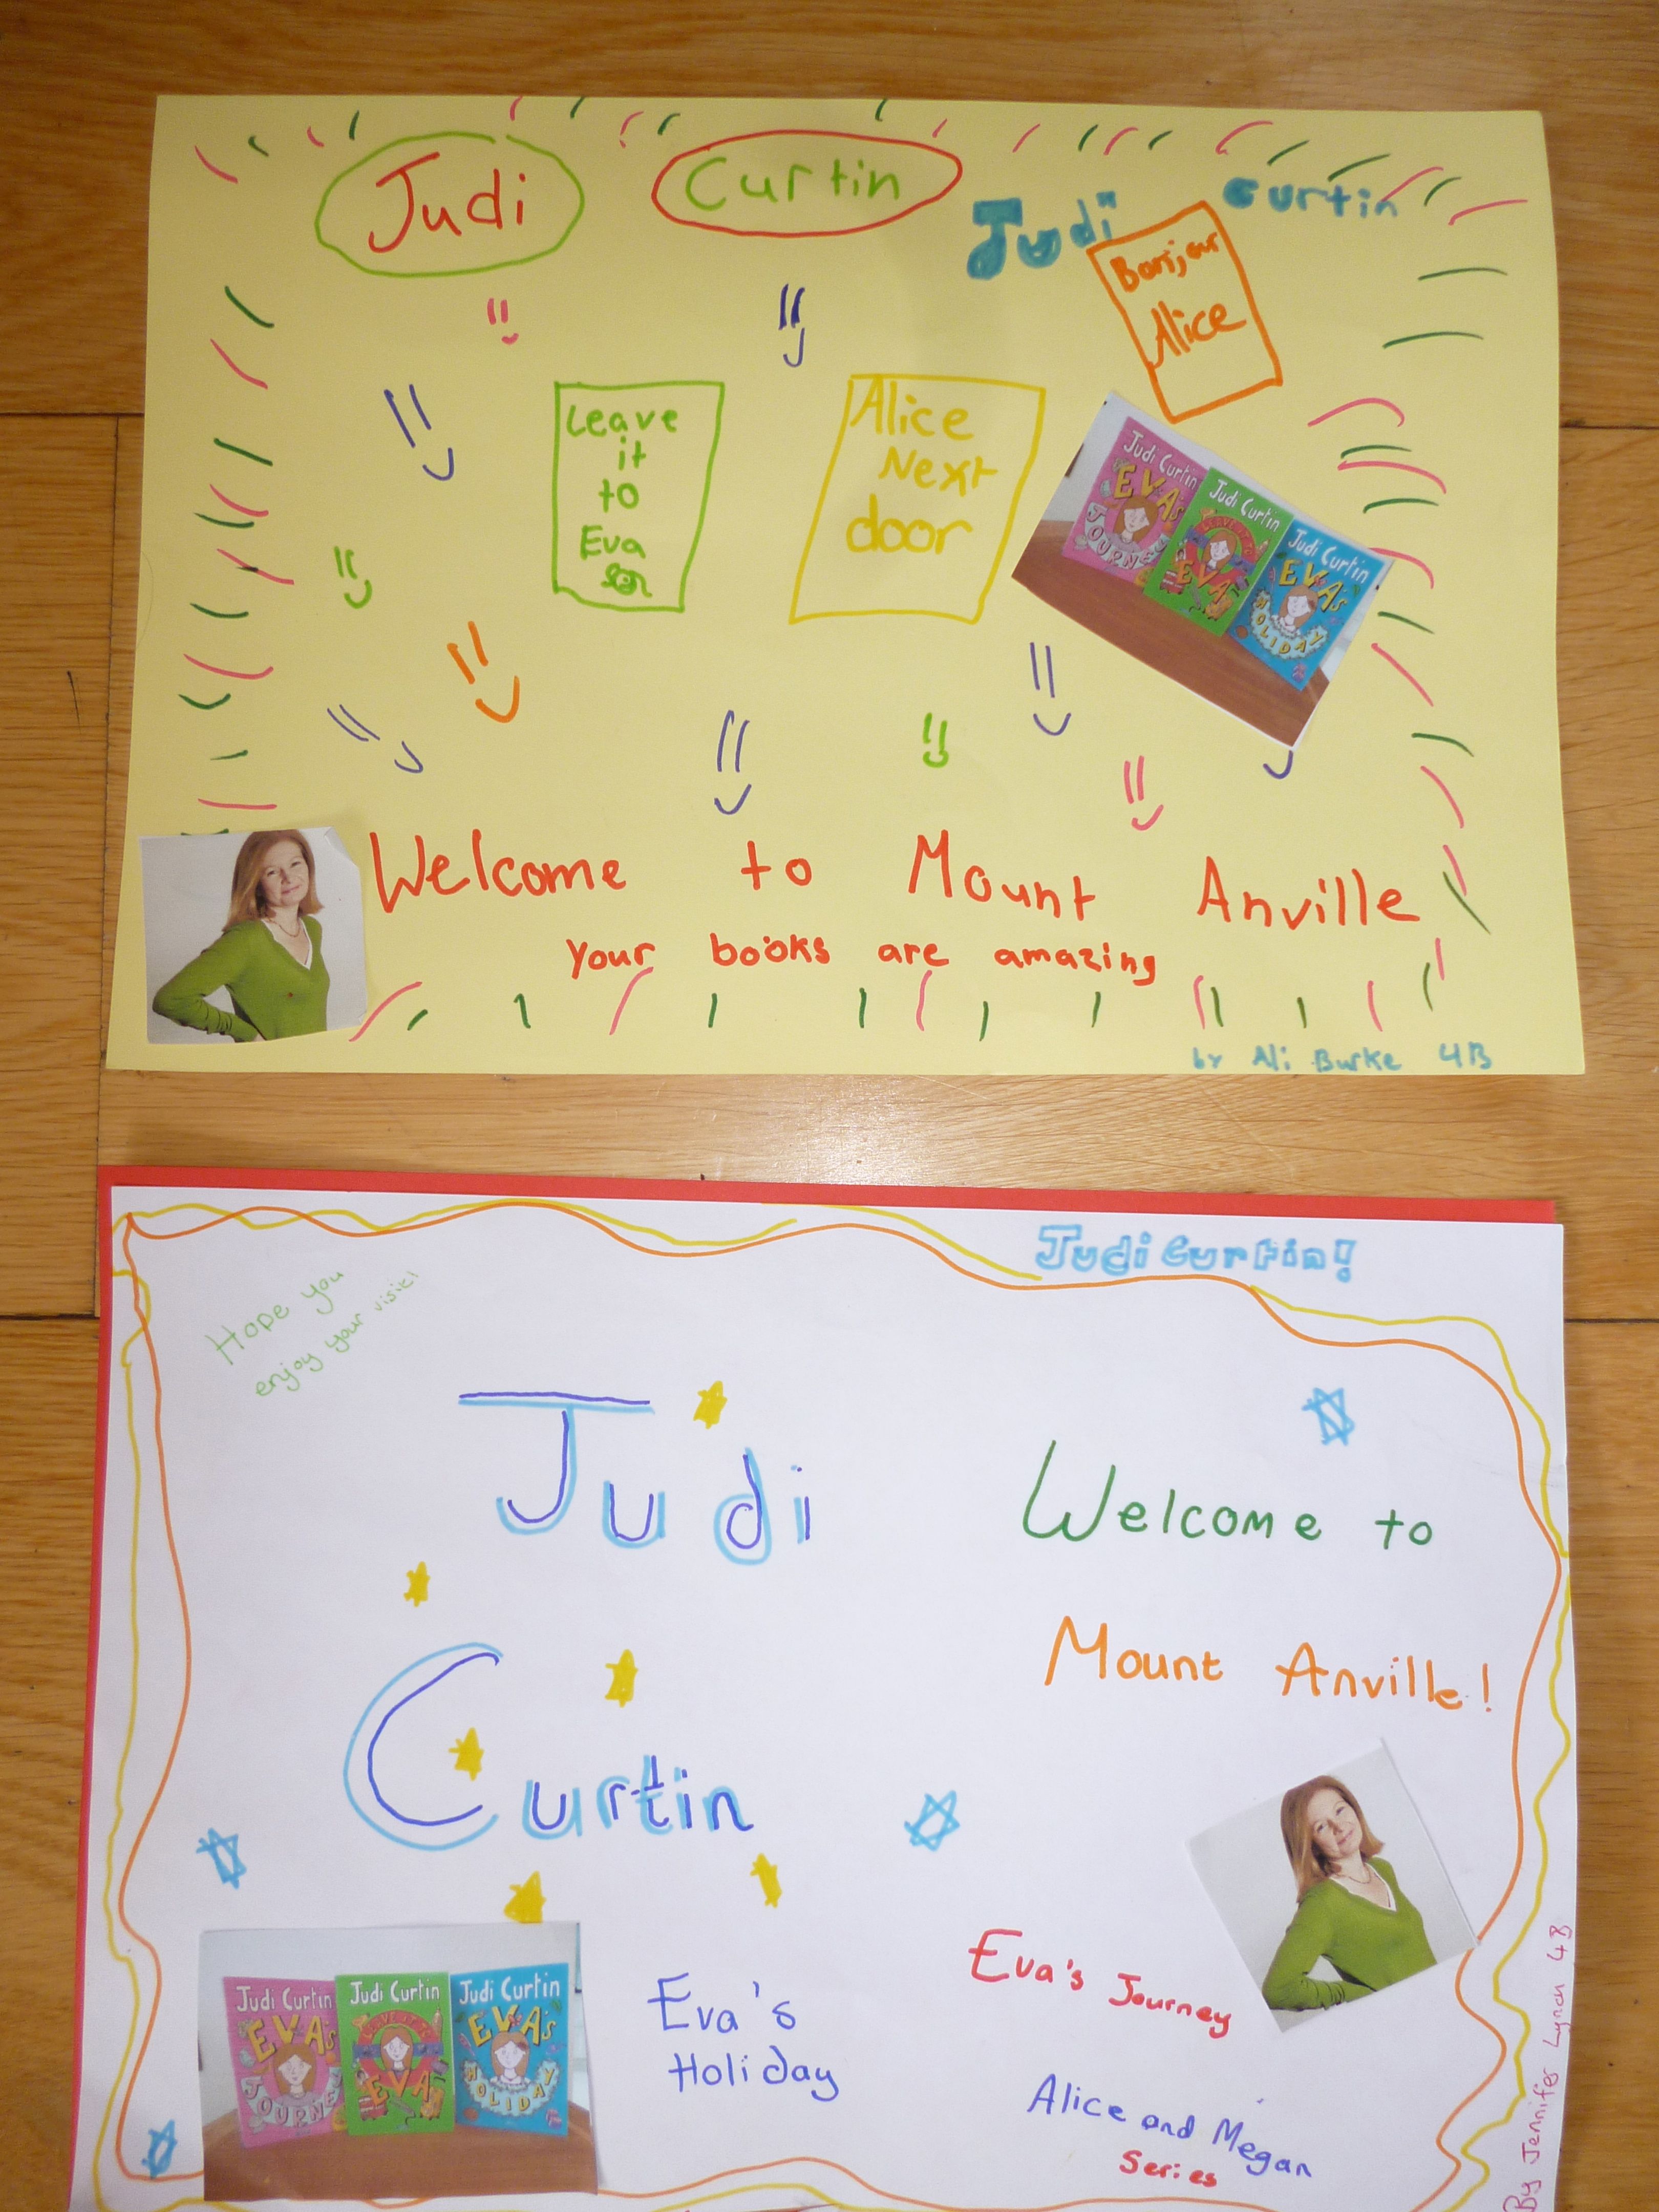 Judi
Curtin
Judi
Curtin
Bonjour
Alice
Leave
it
to
Eva
Alice
Next
door
Judi Curtin
EVA'S
JOURNEY
Judi Curtin
LEAVE IT TO
EVA
Judi Curtin
EVA'S
HOLIDAY
Welcome to Mount Anville
Your books are amazing
by Ali Burke 4B
Judi Curtin!
Hope you
enjoy your visit!
Judi
Welcome to
Curtin
Mount Anville!
Judi Curtin
EVA'S
JOURNEY
Judi Curtin
LEAVE IT TO
EVA
Judi Curtin
EVA'S
HOLIDAY
Eva's
Holiday
Eva's Journey
Alice and Megan
Series
By Jennifer Lynch 4B